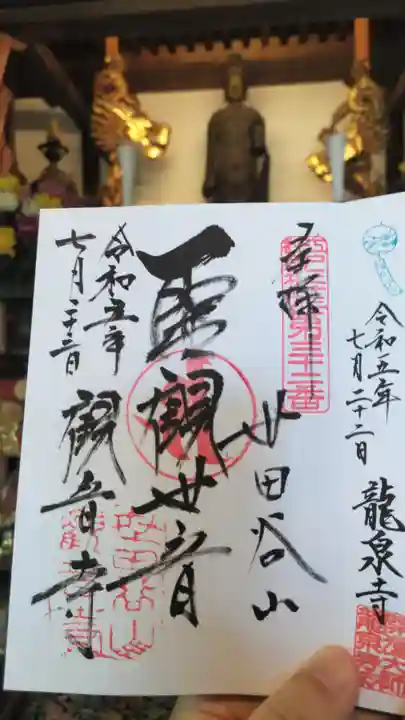 令和五年
七月二十二日
龍泉寺
奉拝
世田谷山
聖観世音
観音寺
令和五年
七月二十二日